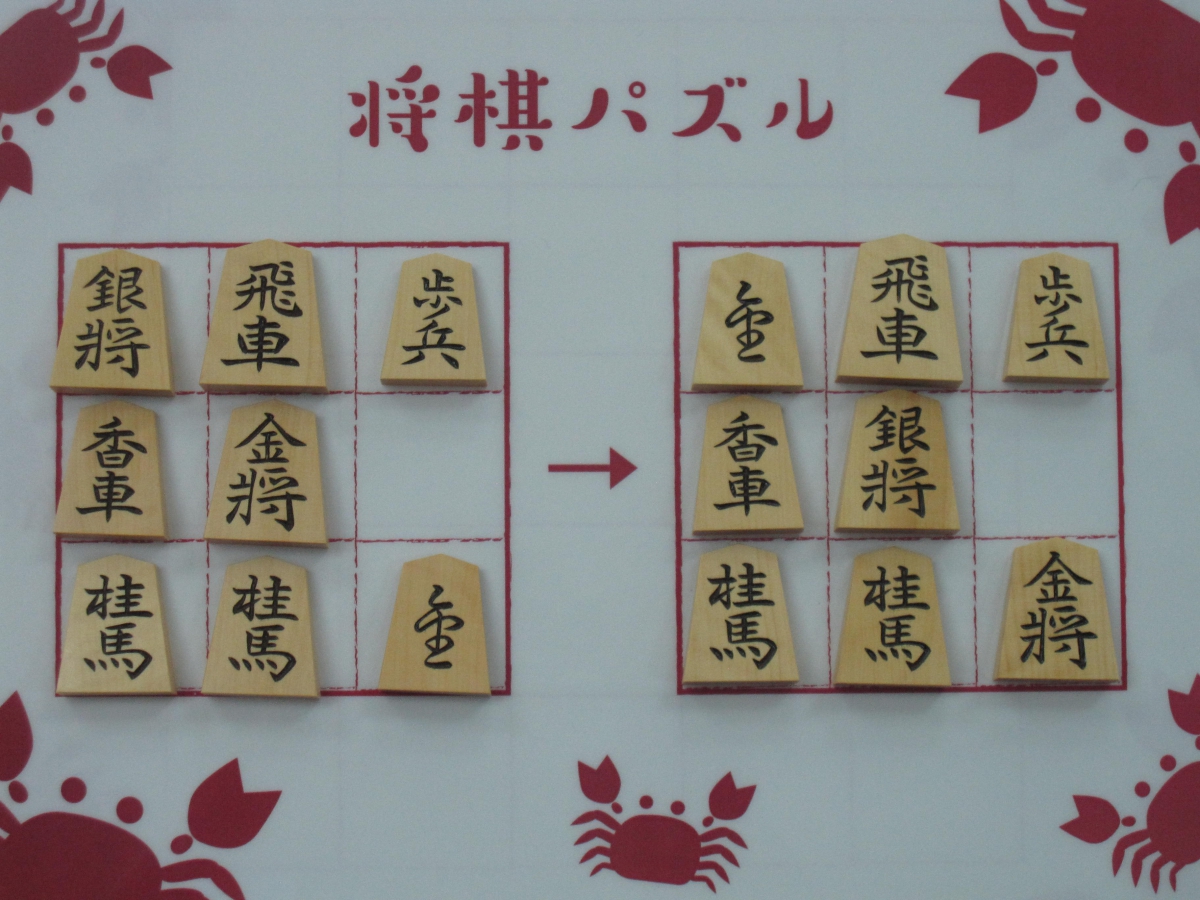 将棋パズル
銀将 飛車 歩兵 全 飛車 歩兵
香車 金将 香車 銀将
桂馬 桂馬 全 桂馬 桂馬 金将